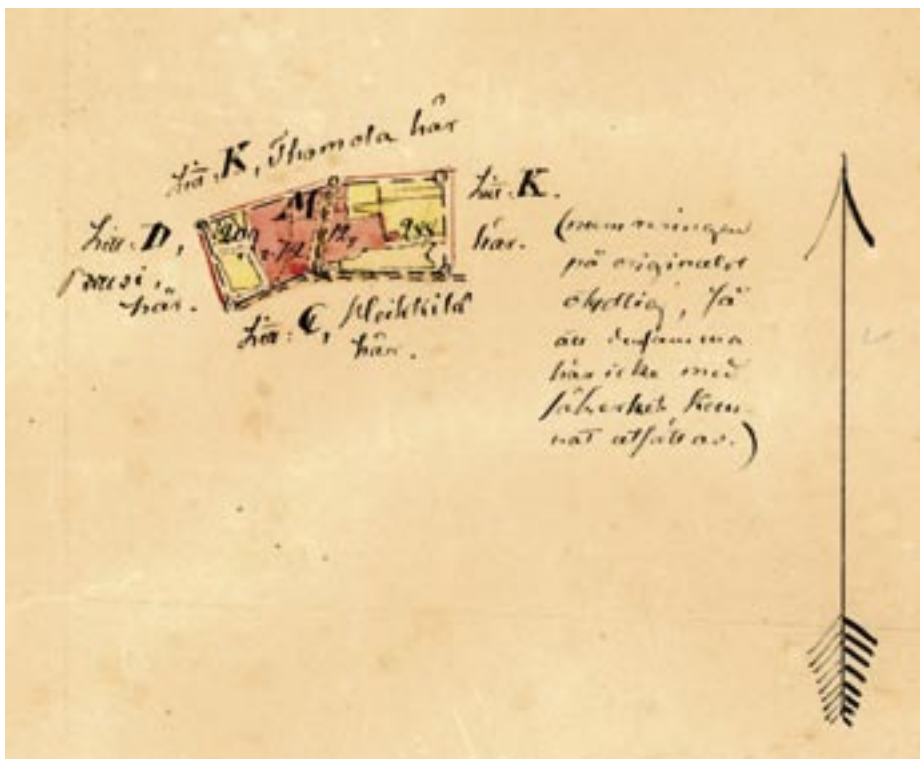 Litt: K, Thomola här
Litt: D,
här.
M
209
12,
288
Litt: K.
här.
Litt: C, Kleikkilä
här.
(numreringen
på originalet
otydlig, så
att densamma
här icke med
säkerhet kun-
nat utsättas.)